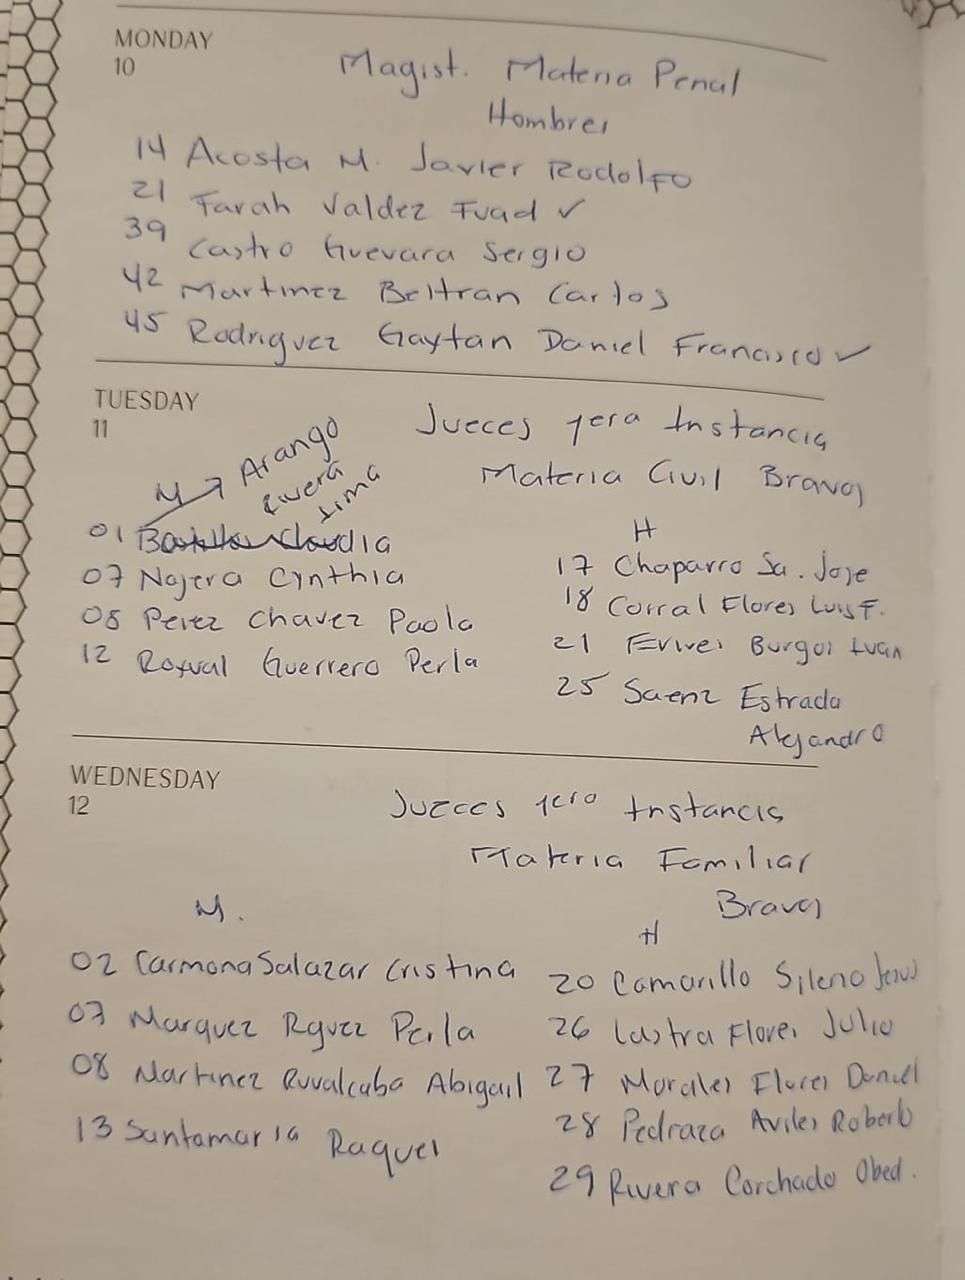 MONDAY
10
Magist. Materia Penal
Hombres
14 Acosta M. Javier Rodolfo
21 Farah Valdez Fuad ✓
39 Castro Guevara Sergio
42 Martinez Beltran Carlos
45 Rodriguez Gaytan Daniel Francisco ✓
TUESDAY
11
Jueces 1era Instancia
Materia Civil Bravos
M → Arango
Rivera
Irma
01 Claudia
07 Najera Cynthia
08 Perez Chavez Paola
12 Guerrero Perla
H
17 Chaparro Sa. Jose
18 Corral Flores Luis F.
21 Erives Burgos Ivan
25 Saenz Estrada
Alejandro
WEDNESDAY
12
Jueces 1era Instancia
Materia Familiar
Bravos
M.
02 Carmona Salazar Cristina
07 Marquez Rguez Perla
08 Martinez Ruvalcaba Abigail
13 Santamaria Raquel
H
20 Camarillo Sileno Jesus
26 Lastra Flores Julio
27 Morales Flores Daniel
28 Pedraza Aviles Roberto
29 Rivera Corchado Obed.